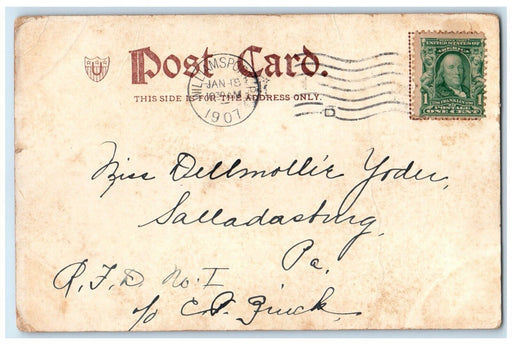 Post Card.
THIS SIDE IS FOR THE ADDRESS ONLY.
WILLIAMSPORT, PA.
JAN 18
1907
D
UNITED STATES OF
AMERICA
1 FRANKLIN 1
POSTAGE
ONE CENT
Miss Dellmollie Yoder,
Salladasburg,
Pa.
R. F. D. No. I
c/o E. P. Zinck.